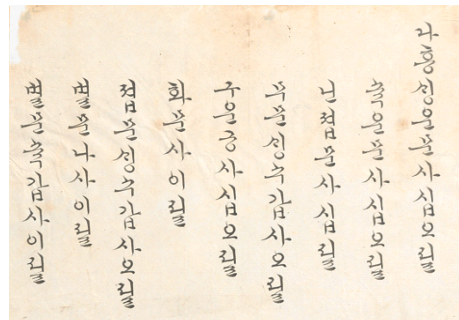 다홍싱운문사십오필
슉운문사십오필
닌졉문사십필
문싱슉갑사오필
구운궁사십오필
화문사이필
졉문싱슉갑사오필
별문나사이필
별문슉갑사이필